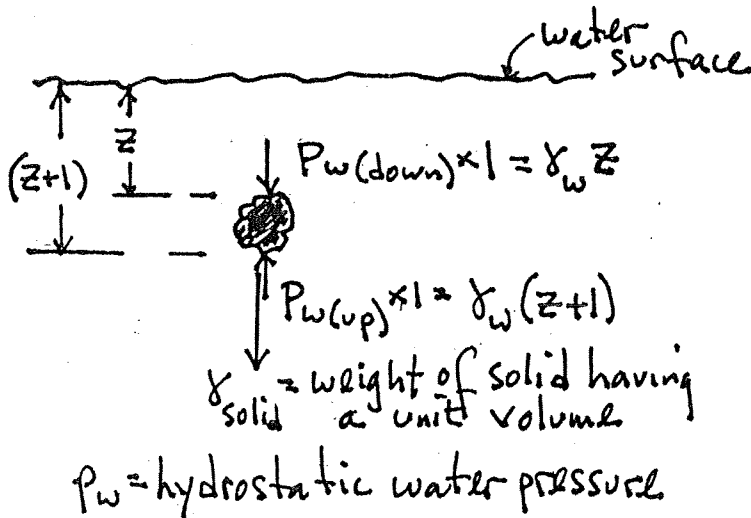 water
surface
z
(z+1)
Pw(down)×1 = γw z
Pw(up)×1 = γw(z+1)
γsolid = weight of solid having
a unit volume
pw = hydrostatic water pressure